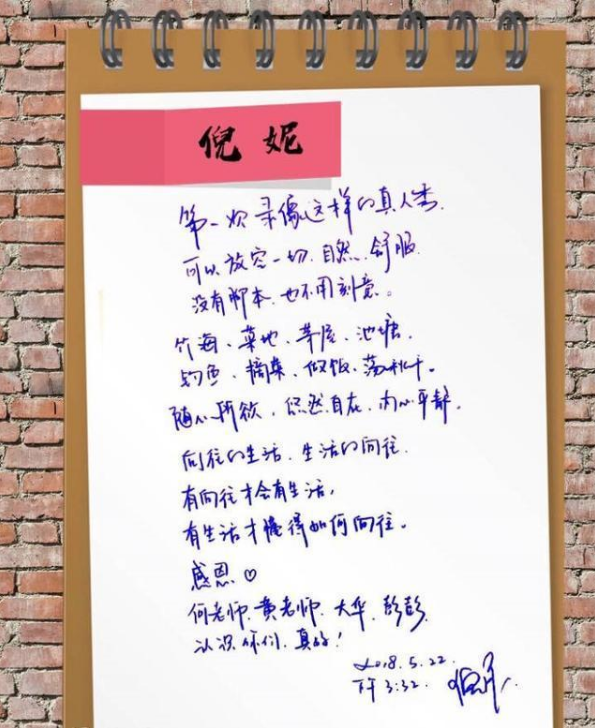 倪妮
第一次录像这样的真人秀.
可以放空一切.自然.舒服.
没有脚本.也不用刻意。
竹海、菜地、茅屋、池塘.
钓鱼、摘菜、做饭、荡秋千。
随心所欲.悠然自在.内心平静.
向往的生活.生活的向往.
有向往才会有生活,
有生活才懂得如何向往。
感恩♡
何老师.黄老师.大华.彭彭.
认识你们.真好!
2018.5.22.
下午3:32.
倪妮